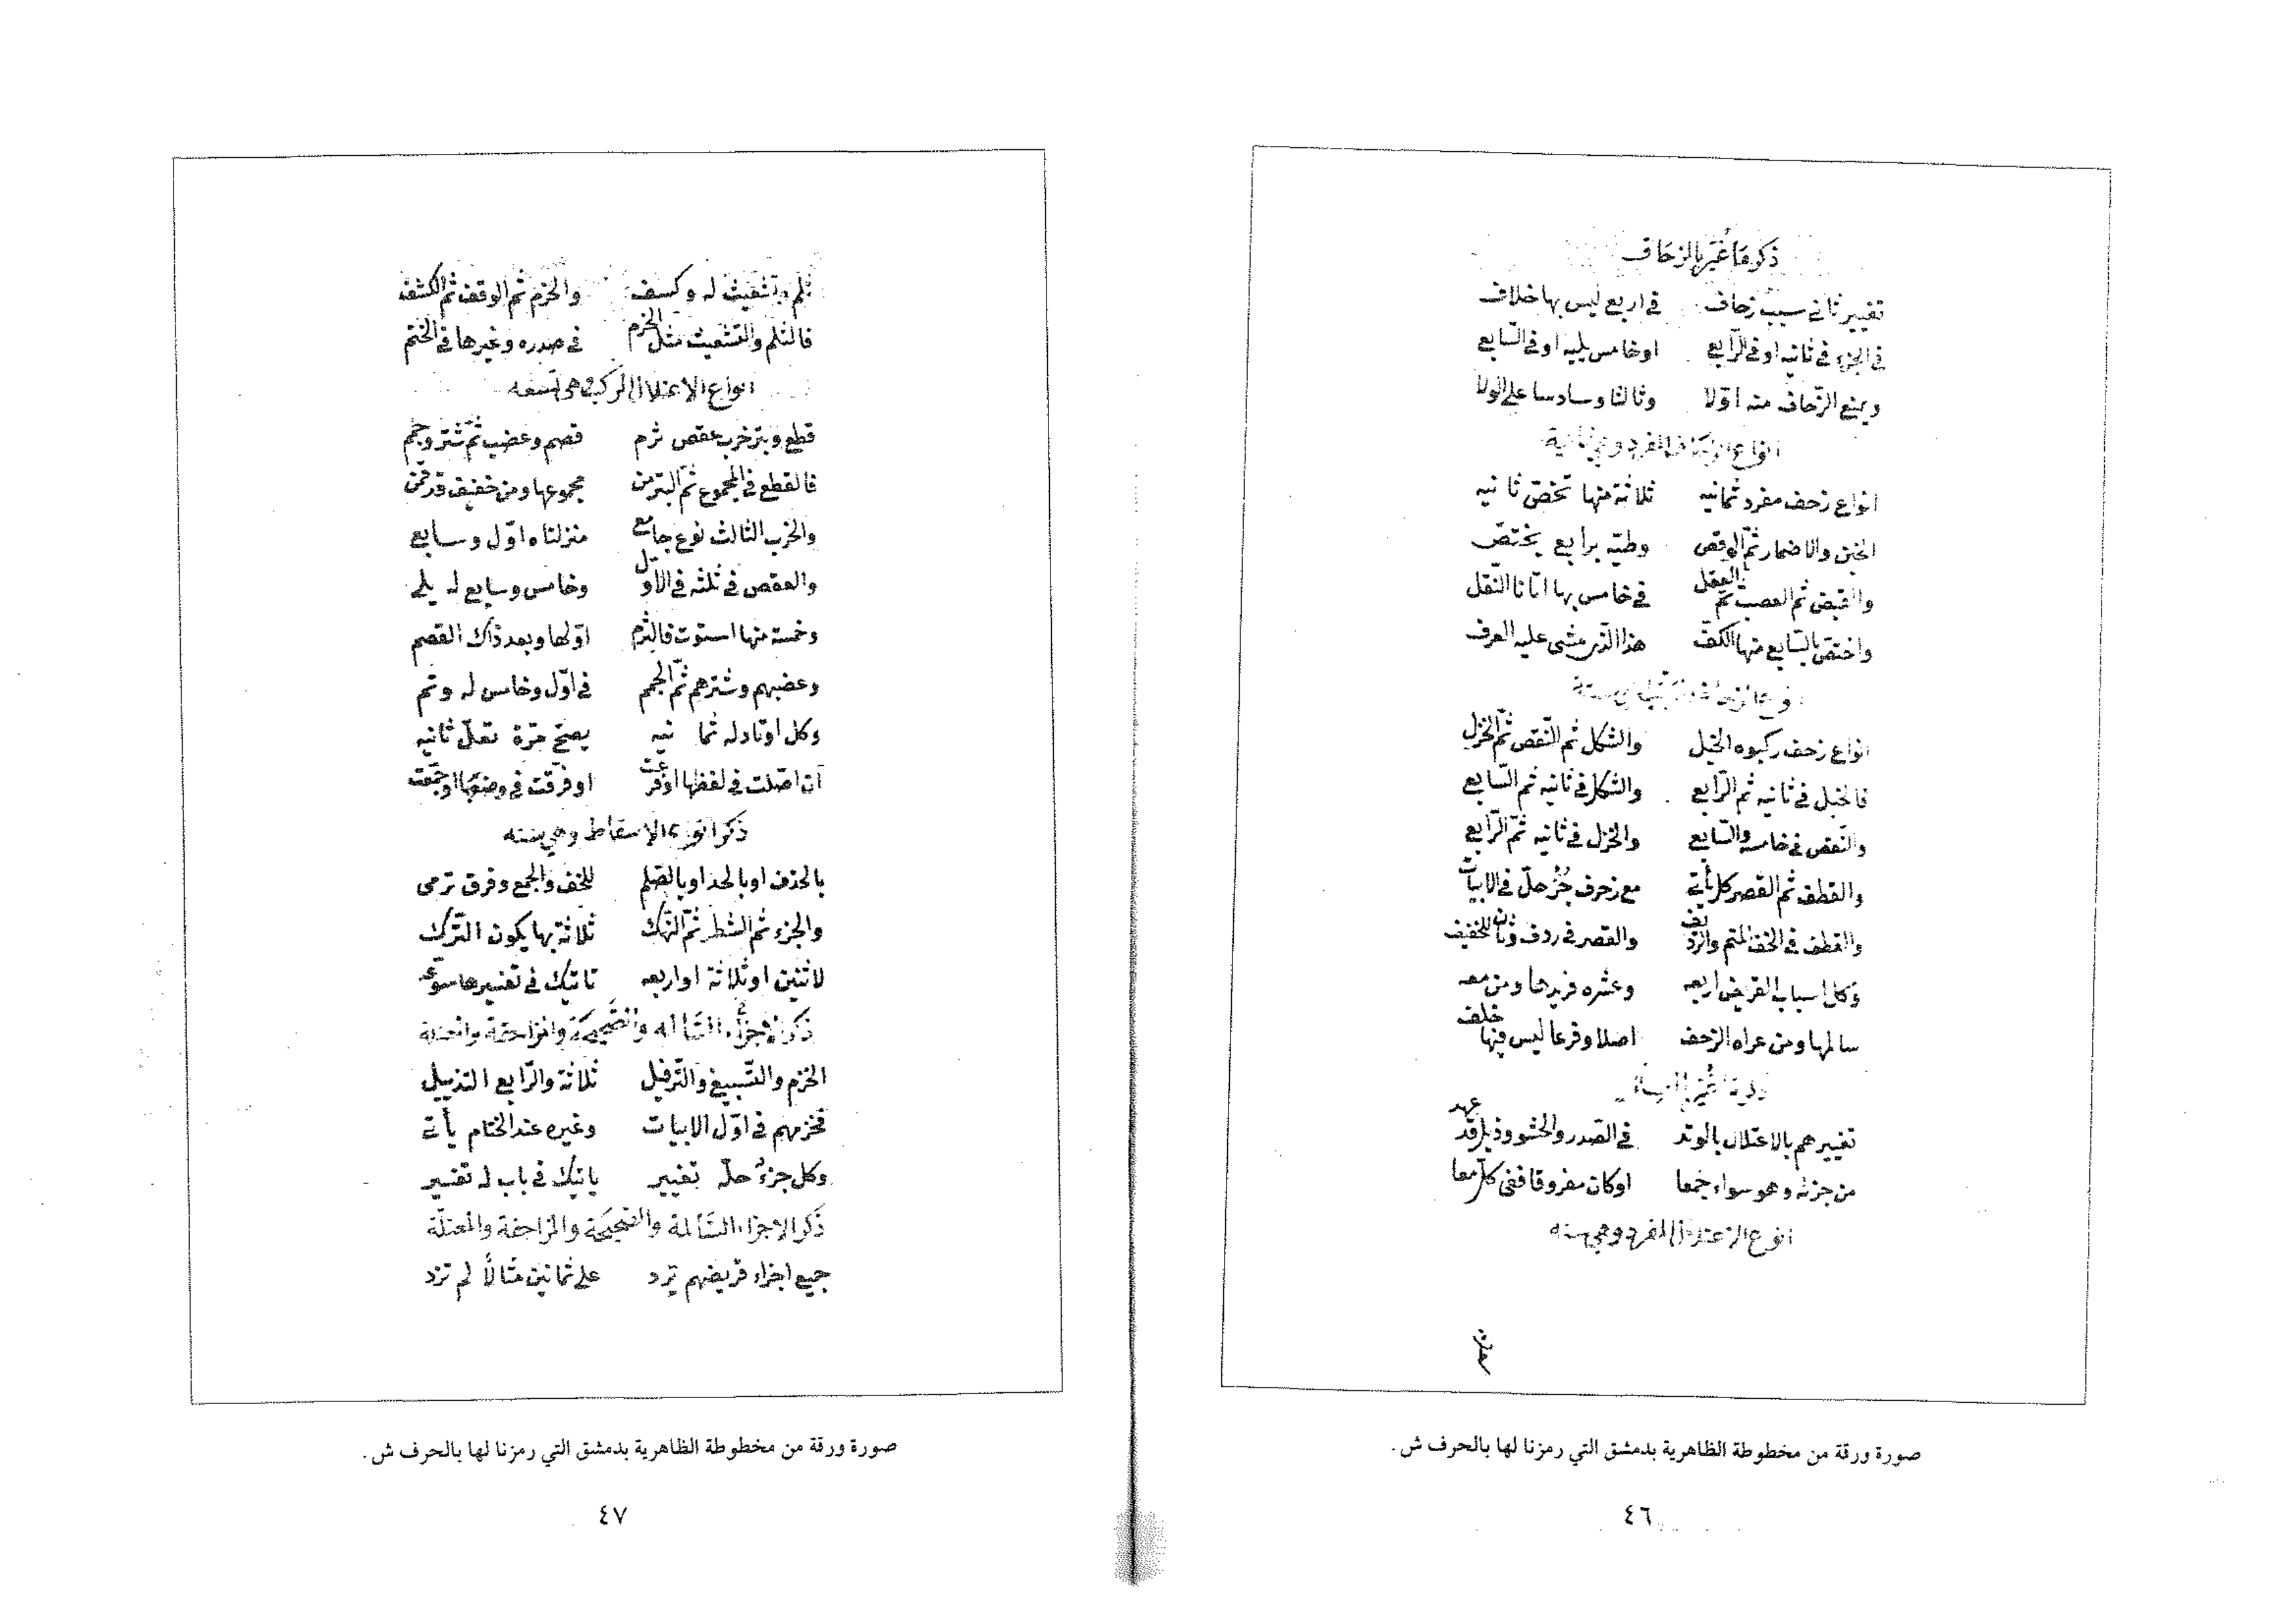 ذكر ما غير بالزحاف
تغيير ثاني سبب زحاف في اربع ليس بها خلاف
في الجزء في ثانيه او في الرابع او خامس يليه او في السابع
ويمنع الزحاف منه اولا وثالثا وسادسا على الولا
انواع الزحاف المفرد وهي ثمانية
انواع زحف مفرد ثمانيه ثلاثة منها تخص ثانيه
الخبن والاضمار ثم الوقص وطيه برابع يختص
والقبض ثم العصب ثم العقل في خامس بها اتانا النقل
واختص بالسابع منها الكف هذا الذي مشى عليه العرف
انواع زحف ركبوه الخبل والشكل ثم النقص ثم الخزل
فالخبل في ثانيه ثم الرابع والشكل في ثانيه ثم السابع
والنقص في خامسه والسابع والخزل في ثانيه ثم الرابع
والقطف ثم القصر كل يأتي مع زحرف جزء حل في الابيات
والقطف في الخف المتم والردف والقصر في ردف وثان للخفيف
وكل اسباب القريض اربعه وعشره فريدها ومن معه
سالمها ومن عراه الزحف اصلا وفرعا ليس فيها خلف
تغييرهم بالاعتلال بالوتد في الصدر والحشو وذيل قد عهد
من جزئه وهو سواء جمعا او كان مفروقا ففي كل معا
انواع الاعتلال المفرد وهي سته
صورة ورقة من مخطوطة الظاهرية بدمشق التي رمزنا لها بالحرف ش .
٤٦
ثلم وتشعيث له وكسف والخزم ثم الوقف ثم الكشف
فالثلم والتشعيث مثل الخرم في صدره وغيرها في الختم
انواع الاعتلال المركب وهي تسعه
قطع وبتر خرب عقص ثرم قصم وعضب ثم شتر وجمم
فالقطع في المجموع ثم البتر من مجموعها ومن خفيف قد قمن
والخرب الثالث نوع جامع منزلتاه اول وسابع
والعقص في ثلثه في الاول وخامس وسابع له يلي
وخمسة منها استوت فالثرم اولها وبعد ذاك القصم
وعضبهم وشترهم ثم الجمم في اول وخامس له وتم
وكل اوتاد له ثمانيه يصح مرة تعل ثانيه
ان اصلت في لفظها او فرعت او فرقت في وضعها او جمعت
ذكر انواع الاسقاط وهي سته
بالحذف او بالحذ او بالصلم للخف والجمع وفرق ترمى
والجزء ثم الشطر ثم النهك ثلاثة بها يكون الترك
لاثنين او ثلاثة او اربعه تاتيك في تفسيرها
ذكر الاجزاء السالمه والصحيحة والمزاحفة والمعتلة
الخزم والتسبيغ والترفيل ثلاثة والرابع التذييل
فخزمهم في اول الابيات وغيره عند الختام يأتي
وكل جزء حله تغيير ياتيك في باب له تفسير
ذكر الاجزاء السالمة والصحيحة والمزاحفة والمعتلة
جميع اجزاء قريضهم ترد على ثمانين مثالا لم تزد
صورة ورقة من مخطوطة الظاهرية بدمشق التي رمزنا لها بالحرف ش .
٤٧